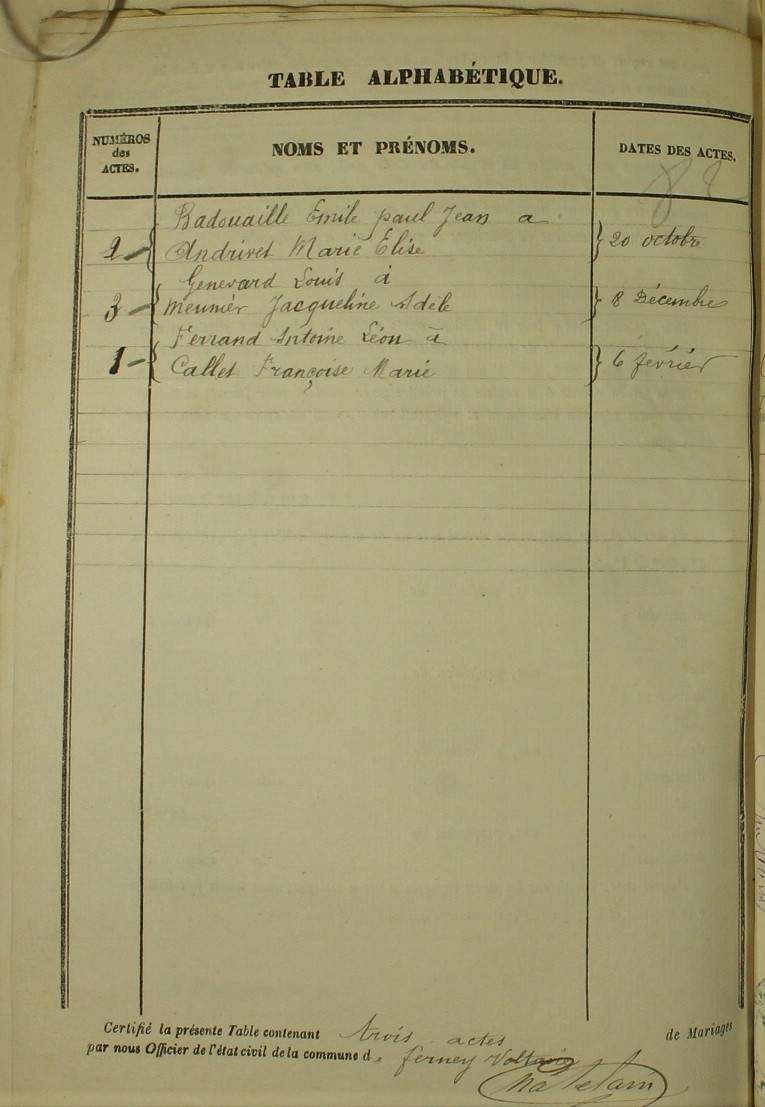 TABLE ALPHABÉTIQUE.
NUMÉROS des ACTES.
NOMS ET PRÉNOMS.
DATES DES ACTES.
88
Badouaille Emile paul Jean a
2 Andrivet Marie Elise } 20 octobre
Genevard Louis à
3 meunier Jacqueline Adèle } 8 Décembre
Ferrand Antoine Léon à
1 Callet Françoise Marie } 6 février
Certifié la présente Table contenant trois actes de Mariages
par nous Officier de l'état civil de la commune de ferney Voltaire